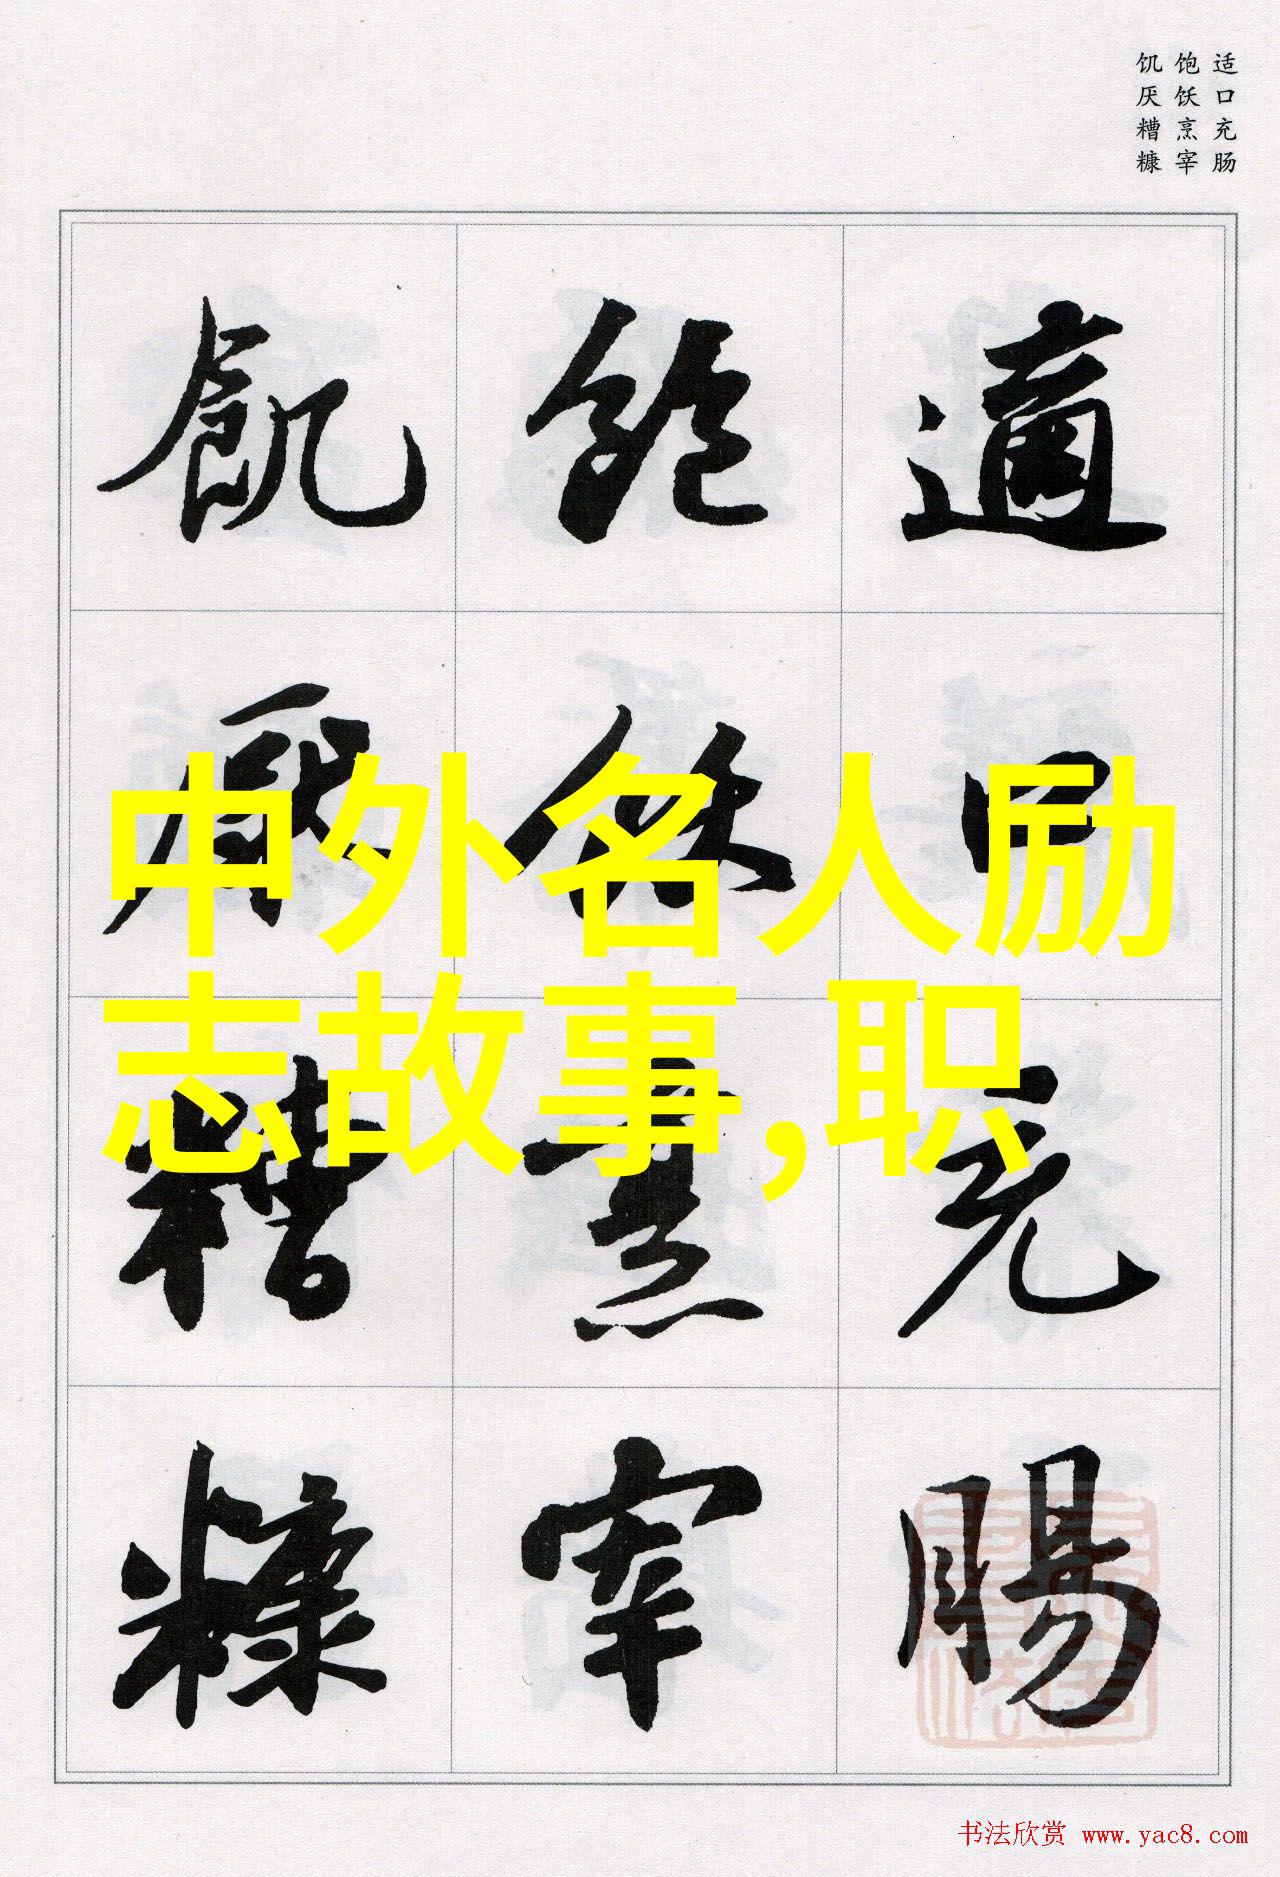 适口充肠
饱饫烹宰
饥厌糟糠
適口充腸
飽飫烹宰
飢厭糟糠
中外名人励
志故事,职
书法欣赏 www.yac8.com